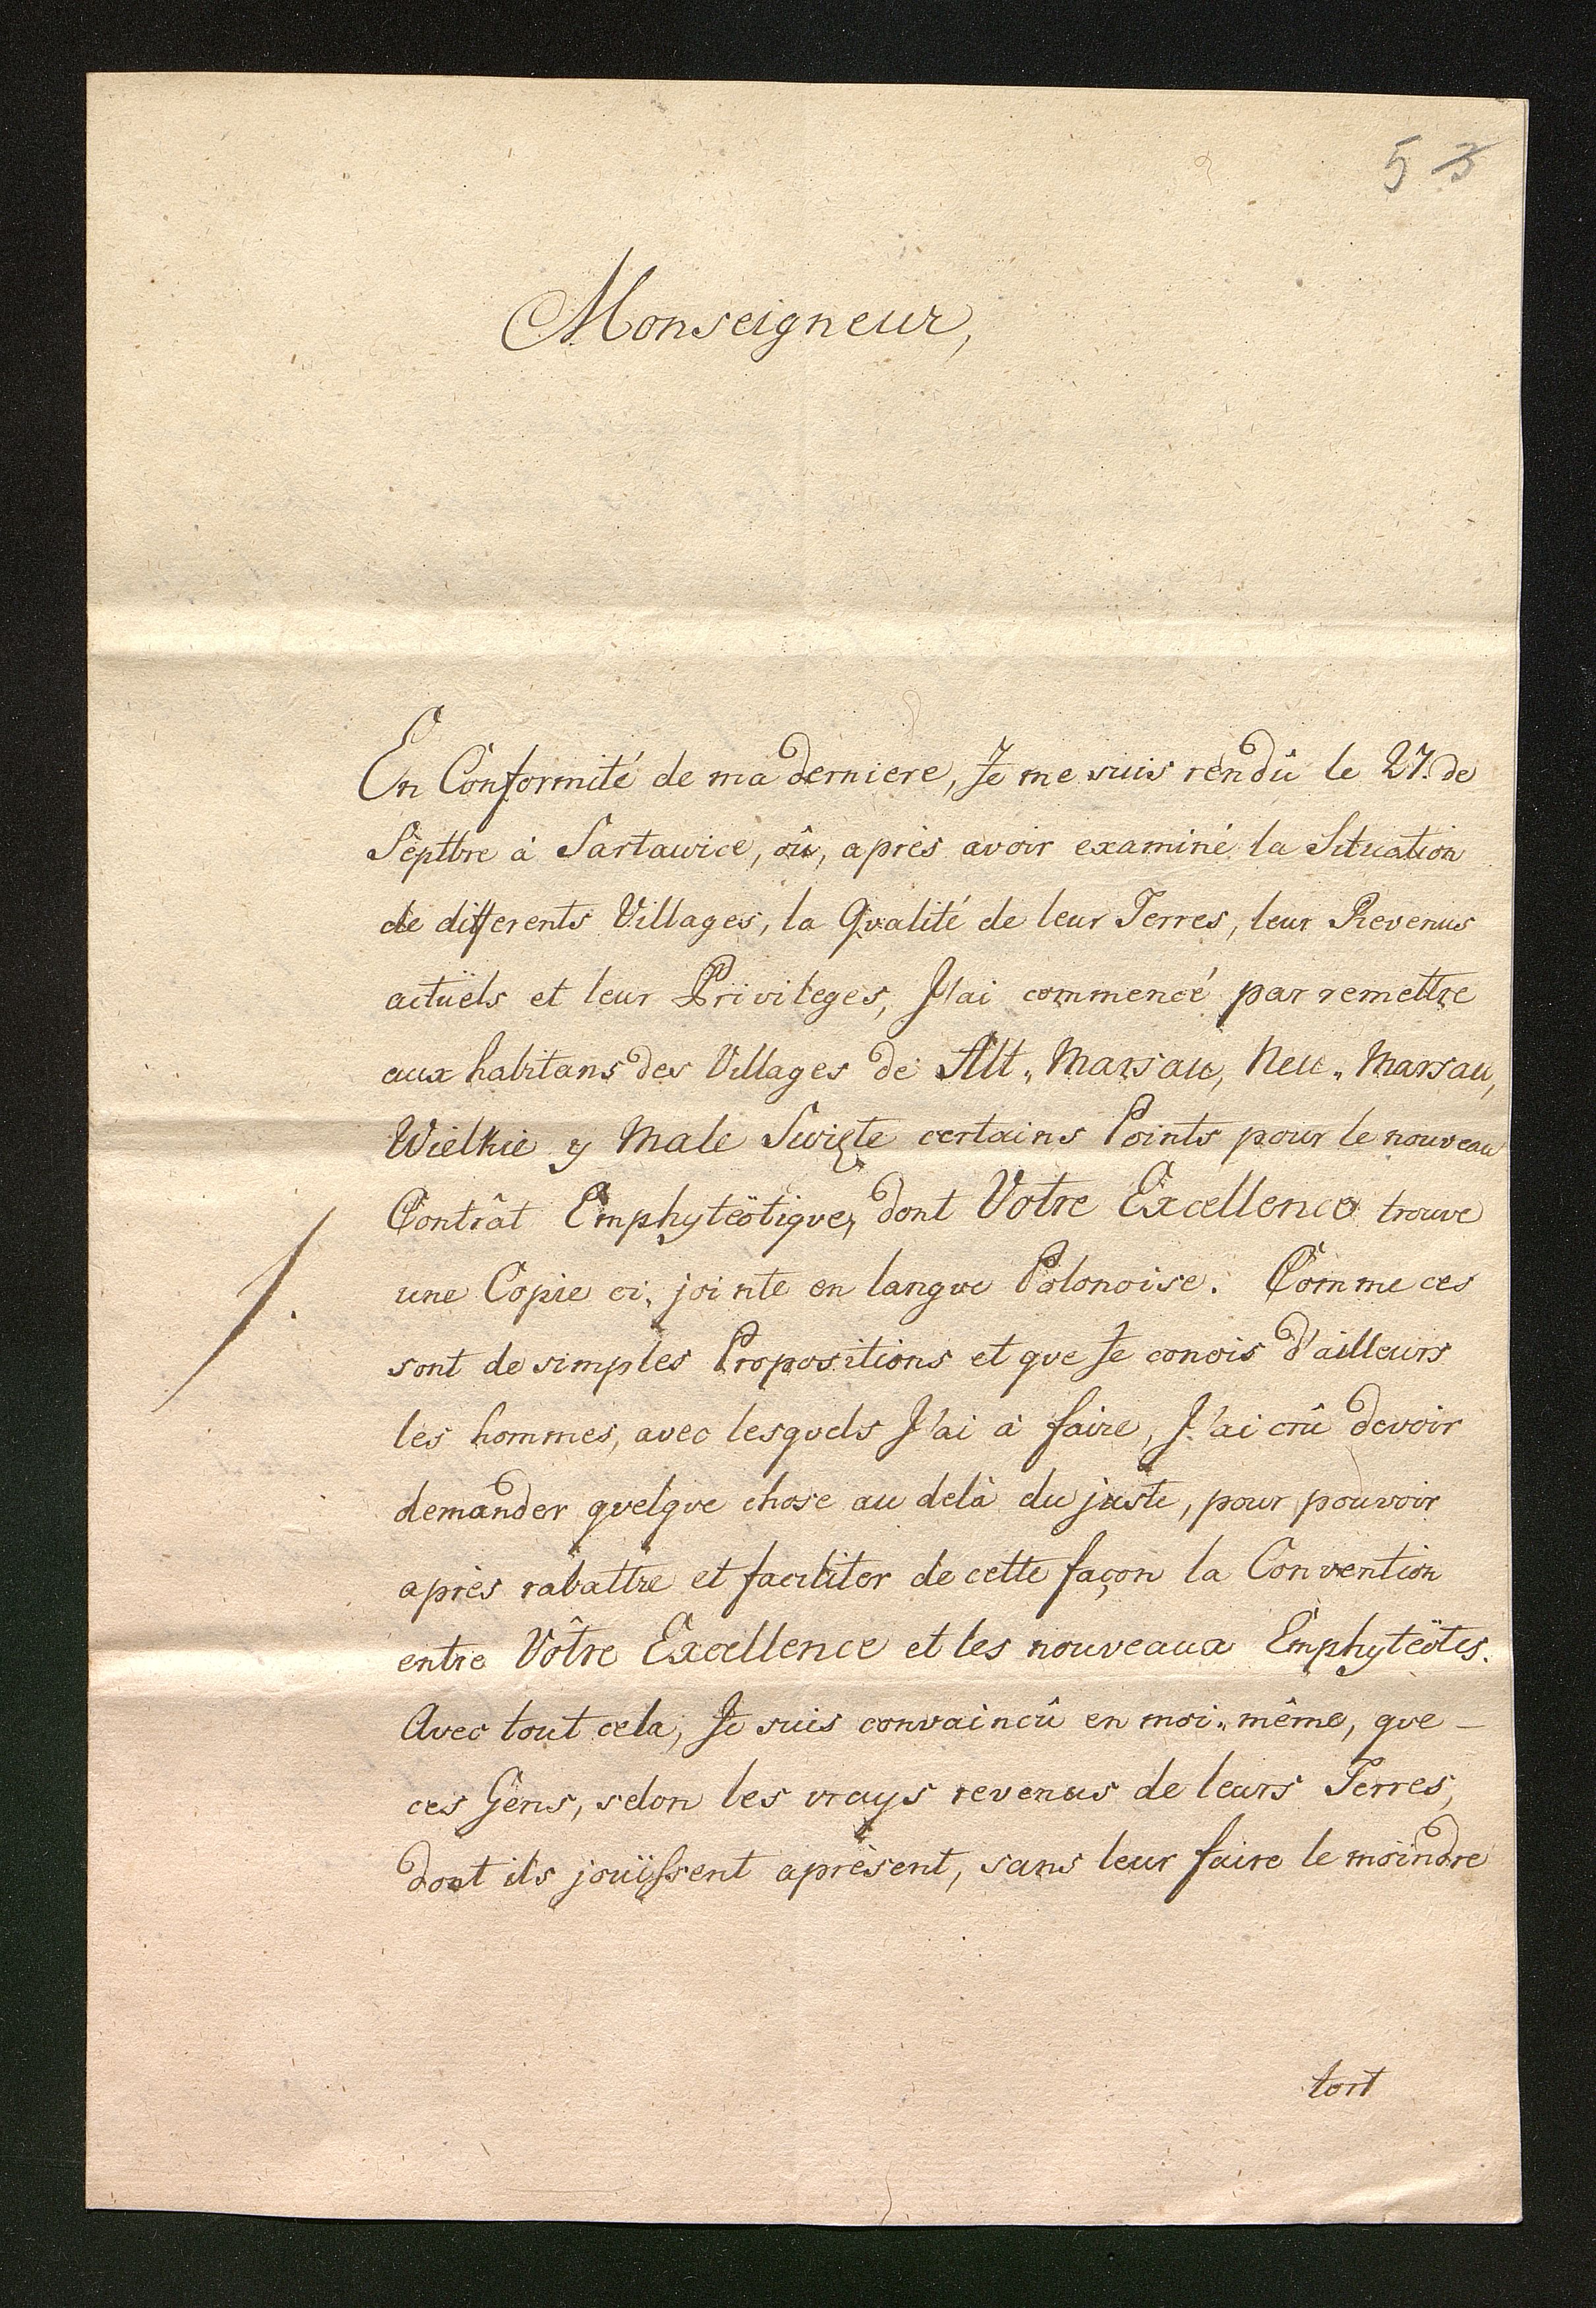 5 3
Monseigneur,
En Conformité de ma derniere, Je me suis rendû le 27. de
Septbre à Sartawice, oû, après avoir examiné la Situation
de differents Villages, la Qvalité de leur Terres, leur Revenus
actüels et leur Privileges, J'ai commencé par remettre
aux habitans des Villages de Alt„ Marsau, Neu„ Marsau,
Wielkie y Male Swięte certains Points pour le nouveau
Contrât Emphyteötiqve, dont Votre Excellence trouve
une Copie ci„ jointe en langve Polonoise. Comme ces
sont de simples Propositions et qve Je conois d'ailleurs
les hommes, avec lesqvels J'ai à faire, J'ai crû devoir
demander qvelqve chose au delà du juste, pour pouvoir
après rabattre et faciliter de cette façon la Convention
entre Vôtre Excellence et les nouveaux Emphyteötes.
Avec tout cela, Je suis convaincû en moi„ même, qve –
ces Gens, selon les vrays revenus de leurs Terres,
dont ils joüissent apresent, sans leur faire le moindre
tort
1.